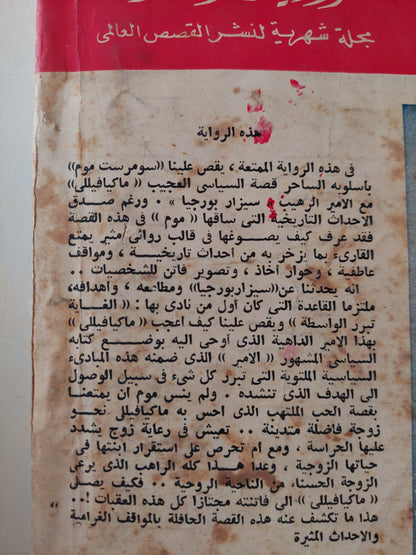 مجلة شهرية لنشر القصص العالمى
هذه الرواية
فى هذه الرواية الممتعة ، يقص علينا «سومرست موم»
بأسلوبه الساحر قصة السياسى العجيب «ماكيافيللى»
مع الامير الرهيب « سيزار بورجيا » . ورغم صدق
الاحداث التاريخية التى ساقها « موم » فى هذه القصة
فقد عرف كيف يصوغها فى قالب روائى مثير يمتع
القارىء بما يزخر به من أحداث تاريخية ، ومواقف
عاطفية ، وحوار أخاذ ، وتصوير فاتن للشخصيات ..
انه يحدثنا عن «سيزار بورجيا» ومطامعه ، وأهدافه،
ملتزما القاعدة التى كان أول من نادى بها : « الغاية
تبرر الواسطة » ويقص علينا كيف أعجب «ماكيافيللى»
بهذا الامير الداهية الذى أوحى اليه بوضع كتابه
السياسى المشهور « الامير » الذى ضمنه هذه المبادىء
السياسية الملتوية التى تبرر كل شىء فى سبيل الوصول
الى الهدف الذى تنشده . ولم ينس موم أن يمتعنا
بقصة الحب الملتهب الذى احس به ماكيافيللى نحو
زوجة فاضلة متدينة .. تعيش فى رعاية زوج يشدد
عليها الحراسة ، ومع ام تحرص على استقرار ابنتها فى
حياتها الزوجية ، وعدا هذا كله الراهب الذى يرعى
الزوجة الحسناء من الناحية الروحية .. فكيف يصل
« ماكيافيللى » الى فاتنته مجتازا كل هذه العقبات !..
هذا ما تكشف عنه هذه القصة الحافلة بالمواقف الغرامية
والاحداث المثيرة